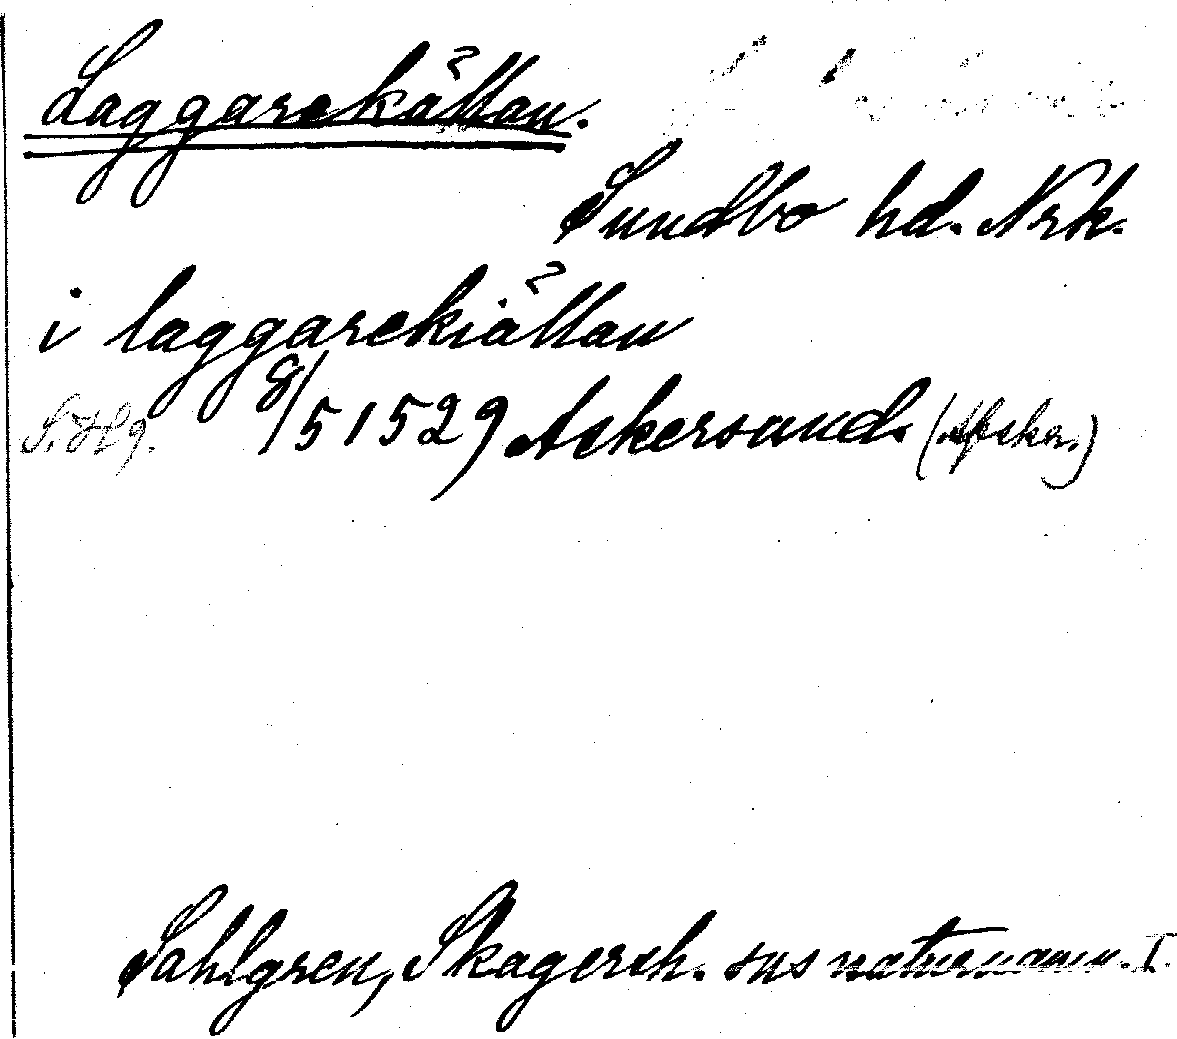 Laggarekällan.
Sundbo hd. Nrk.
i laggarekiällan
8/5 1529 Askersund. (Afskr.)
Sahlgren, Skagersh. sns naturnamn. I.